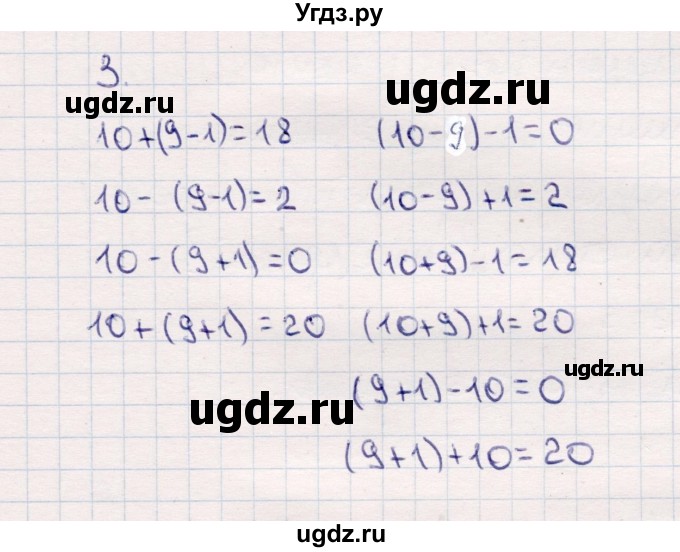 Угдз.ру
3.
ugdz.ru ugdz.ru
10+(9-1)=18 (10-9)-1=0
10-(9-1)=2 (10-9)+1=2
10-(9+1)=0 (10+9)-1=18
10+(9+1)=20 (10+9)+1=20
ugdz.ru
(9+1)-10=0
ugdz.ru
(9+1)+10=20
ugdz.ru